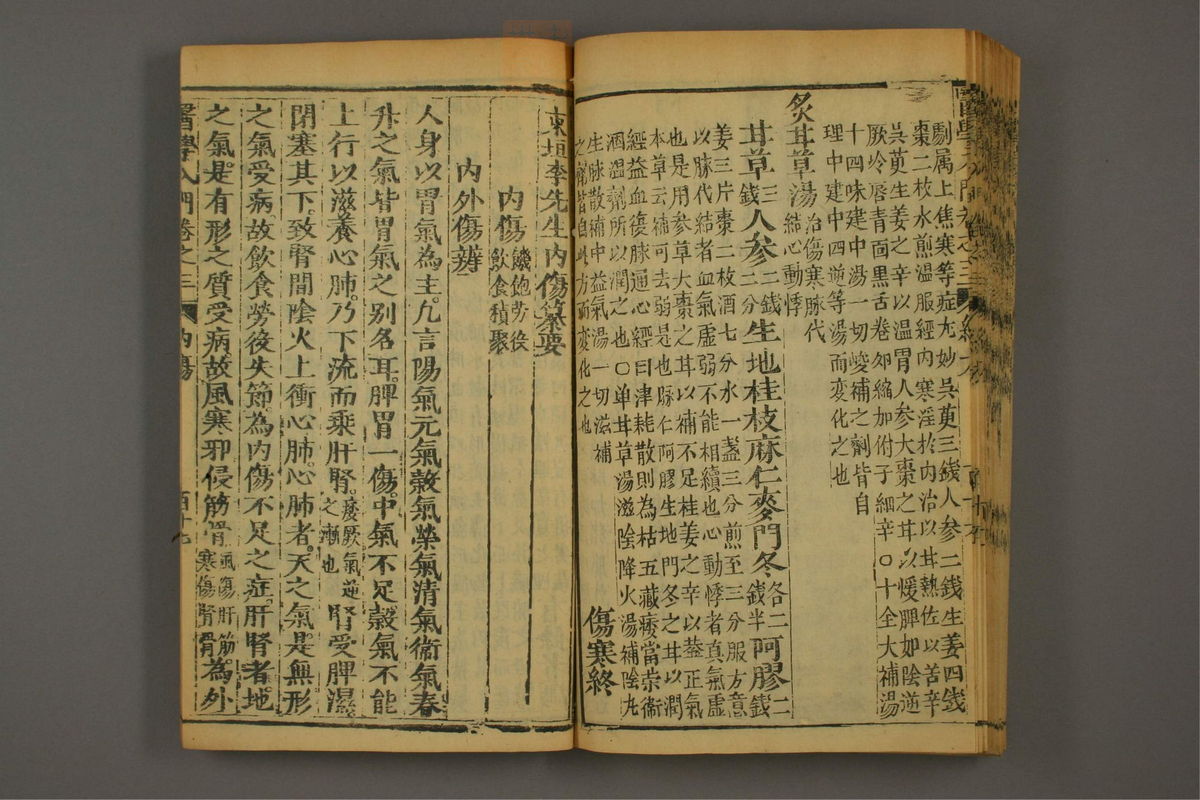 劇属上焦寒等症尢妙吳茰三錢人参二錢生姜四錢
棗二枚水煎溫服經内寒淫扵内治以甘熱佐以苦辛
吳茰生姜之辛以温胃人参大棗之甘以煖脾如陰逆
厥冷唇青面黒舌卷卵縮加附子細辛○十全大補湯
十四味建中湯一切峻補之劑皆自
理中建中四逆等湯而變化之也
炙甘草湯治傷寒脉代
結心動悸
甘草三錢人参二錢二分生地桂枝麻仁麥門冬各二錢半阿膠二錢
姜三片棗二枚酒七分水一盞三分煎至三分服方意
以脉代結者血氣虛弱不能相續也心動悸者真氣虛
也是用参草大棗之甘以補不足桂姜之辛以葢正氣
本草云補可去弱是也麻仁阿膠生地門冬之甘以潤
經益血復脉通心經曰津耗散則為枯五藏痿當崇衞
酒温劑所以潤之也○单甘草湯滋陰降火湯補陰丸
生脉散補中益氣湯一切滋補
之劑皆自此方而變化之也
傷寒終
東垣李先生内傷纂要
内傷 饑飽劳役
飲食積聚
内外傷辨
人身以胃氣為主。凢言陽氣元氣穀氣榮氣清氣衞氣春
升之氣皆胃氣之别名耳。脾胃一傷。中氣不足穀氣不能
上行以滋養心肺。乃下流而乘肝腎。痿厥氣逆之漸也腎受脾濕。
閉塞其下。致腎間陰火上衝心肺。心肺者。天之氣。是無形
之氣受病。故飲食勞役失節。為内傷不足之症。肝腎者。地
之氣。是有形之質受病。故風寒邪侵筋骨風傷肝筋。寒傷腎骨為外
醫學入門卷之三 内傷 百十七